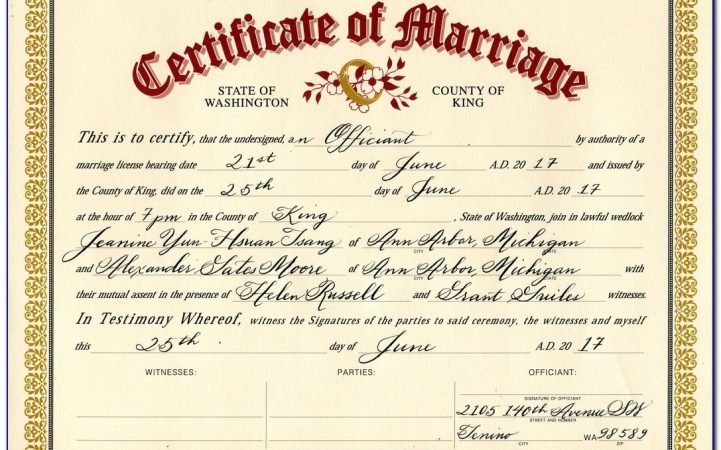 Certificate of Marriage
STATE OF WASHINGTON
COUNTY OF KING
This is to certify, that the undersigned, an Officiant by authority of a
marriage license bearing date 21st day of June A.D. 2017 and issued by
the County of King, did on the 25th day of June A.D. 2017
at the hour of 7pm in the County of King, State of Washington, join in lawful wedlock
Jeanine Yun-Hsuan Tsang of Ann Arbor, Michigan
CITY STATE
and Alexander Gates Moore of Ann Arbor, Michigan with
CITY STATE
their mutual assent in the presence of Helen Russell and Grant Guiles witnesses.
In Testimony Whereof, witness the Signatures of the parties to said ceremony, the witnesses and myself
this 25th day of June A.D. 2017
WITNESSES: PARTIES: OFFICIANT:
SIGNATURE OF OFFICIANT
2105 140th Avenue SW
STREET AND NUMBER
Tenino WA 98589
CITY ZIP